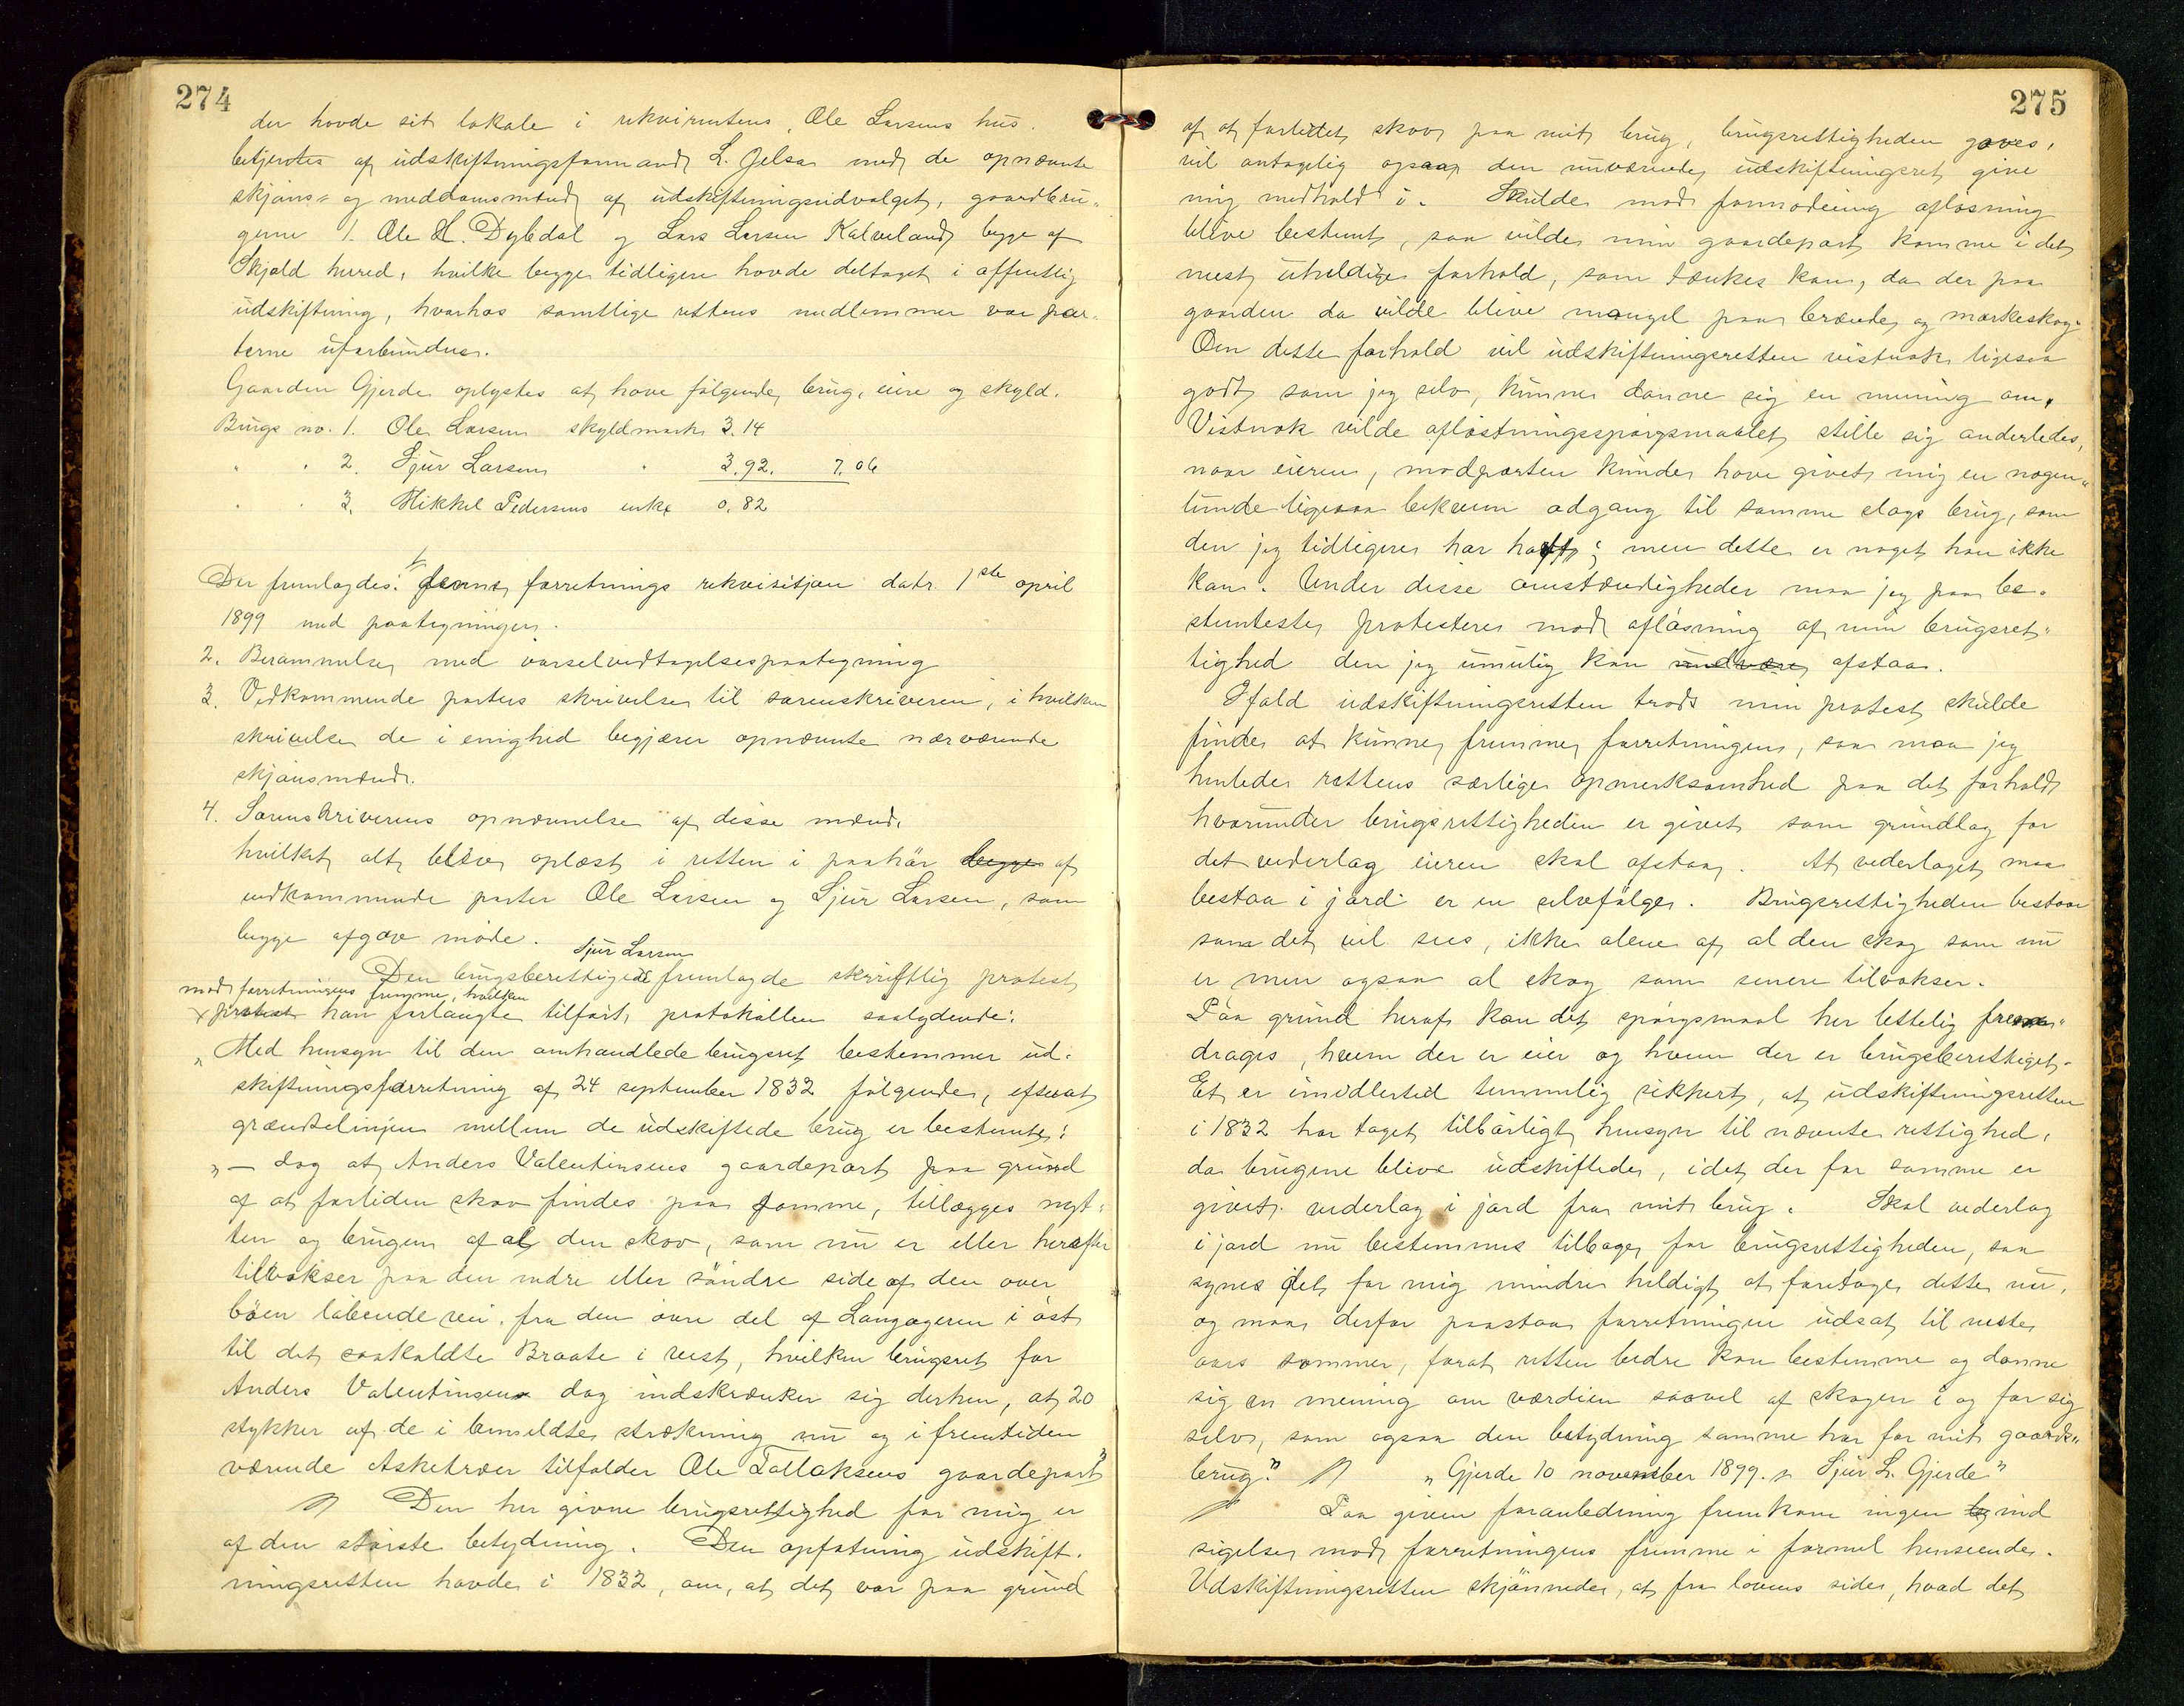 274
der havde sit lokale i rekvirentens, Ole Larsens hus.
betjentes af udskiftningsformand L. Jelsa med de opnævnte
skjøns- og meddomsmænd af udskiftningsudvalget, gaardbru-
gerne 1. Ole H. Dybdal og Lars Larsen Kalveland begge af
Skjold herred, hvilke begge tidligere havde deltaget i offentlig
udskiftning, hvorhos samtlige rettens medlemmer var par-
terne uforbundne.
Gaarden Gjerde oplystes at have følgende brug, eiere og skyld.
Brugs no. 1. Ole Larsen skyldmark 3.14
" " 2. Sjur Larsen " 3.92. 7.06
" " 3. Mikkel Pedersens enke 0.82
Der fremlagdes: 1. denne forretnings rekvisitjon datr. 1ste april
1899 med paategninger.
2. Berammelse med varselvedtagelsespaategning
3. Vedkommende parters skrivelse til sorenskriveren, i hvilken
skrivelse de i enighed begjærer opnævnte nærværende
skjønsmænd.
4. Sorenskriverens opnævnelse af disse mænd.
hvilket alt blev oplæst i retten i paahør begge af
vedkommende parter Ole Larsen og Sjur Larsen, som
begge afgav møde.
Sjur Larsen
Den brugsberettigede fremlagde skriftlig protest
mod forretningens fremme, hvilken
x protest han forlangte tilført protokollen saalydende:
"Med hensyn til den omhandlede brugsret bestemmer ud-
skiftningsforretning af 24 september 1832 følgende, efterat
grændselinjen mellem de udskiftede brug er bestemt:
"— dog at Anders Valentinsens gaardepart paa grund
af at fortiden skov findes paa samme, tillægges nyt-
ten og brugen af al den skov, som nu er eller herefter
tilvokser paa den nedre eller søndre side af den over
bøen løbende vei, fra den øvre del af Langageren i øst
til det saakaldte Braate i vest, hvilken brugsret for
Anders Valentinsen dog indskrænker sig derhen, at 20
stykker af de i bemeldte strækning nu og i fremtiden
værende Asketræer tilfalder Ole Tollaksens gaardepart"
Den her givne brugsrettighed for mig er
af den største betydning. Den opfatning udskift-
ningsretten havde i 1832, om, at det var paa grund
275
af at forledet skov paa mit brug, brugsrettigheden gaves,
vil antagelig ogsaa den nuværende udskiftningsret give
mig medhold i. Skulde mod formodning afløsning
blive bestemt, saa vilde min gaardepart komme i det
mest uheldige forhold, som tænkes kan, da der paa
gaarden da vilde blive mangel paa brænde og markeskog.
Om dette forhold vil udskiftningsretten vistnok ligesaa
godt som jeg selv, kunne danne sig en mening om.
Vistnok vilde afløstningsspørgsmaalet stille sig anderledes,
naar eieren, modparten kunde have givet mig en nogen-
lunde ligesaa bekvem adgang til samme slags brug, som
den jeg tidligere har haft; men dette er noget han ikke
kan. Under disse omstændigheder maa jeg paa be-
stemteste protestere mod afløsning af min brugsret-
tighed den jeg umulig kan undvære afstaa.
Ifald udskiftningsretten trods min protest skulde
finde at kunne fremme forretningen, saa maa jeg
henlede rettens særlige opmerksomhed paa det forhold
hvorunder brugsrettigheden er givet som grundlag for
det vederlag eieren skal afstaa. At vederlaget maa
bestaa i jord er en selvfølge. Brugsrettigheden bestaar
som det vil sees, ikke alene af al den skog som nu
er men ogsaa al skog som senere tilvokser.
Paa grund heraf kan det spørgsmaal her lettelig frem-
drages, hvem der er eier og hvem der er brugsberettiget.
Et er imidlertid temmelig sikkert, at udskiftningsretten
i 1832 har taget tilbørligt hensyn til nævnte rettighed,
da brugene blive udskiftede, idet der for samme er
givet vederlag i jord fra mit brug. Skal vederlag
i jord nu bestemmes tilbage for brugsrettigheden, saa
synes det for mig mindre heldigt at foretage dette nu,
og maa derfor paastaa forretningen udsat til neste
aars sommer, forat retten bedre kan bestemme og danne
sig en mening om værdien saavel af skogen i og for sig
selv, som ogsaa den betydning samme har for mit gaards-
brug." "Gjerde 10 november 1899. Sjur L. Gjerde"
Paa given foranledning fremkom ingen ind
sigelse mod forretningens fremme i formel henseende.
Udskiftningsretten skjønnede, at fra lovens side, hvad det